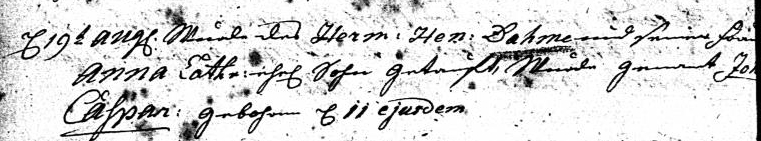 19t Aug. Wurde des Herm: Hen: Dahme und seiner Frau
Anna Cath: ehel Sohn getauft, Wurde genant Joh
Caspar: gebohren 11 ejusdem